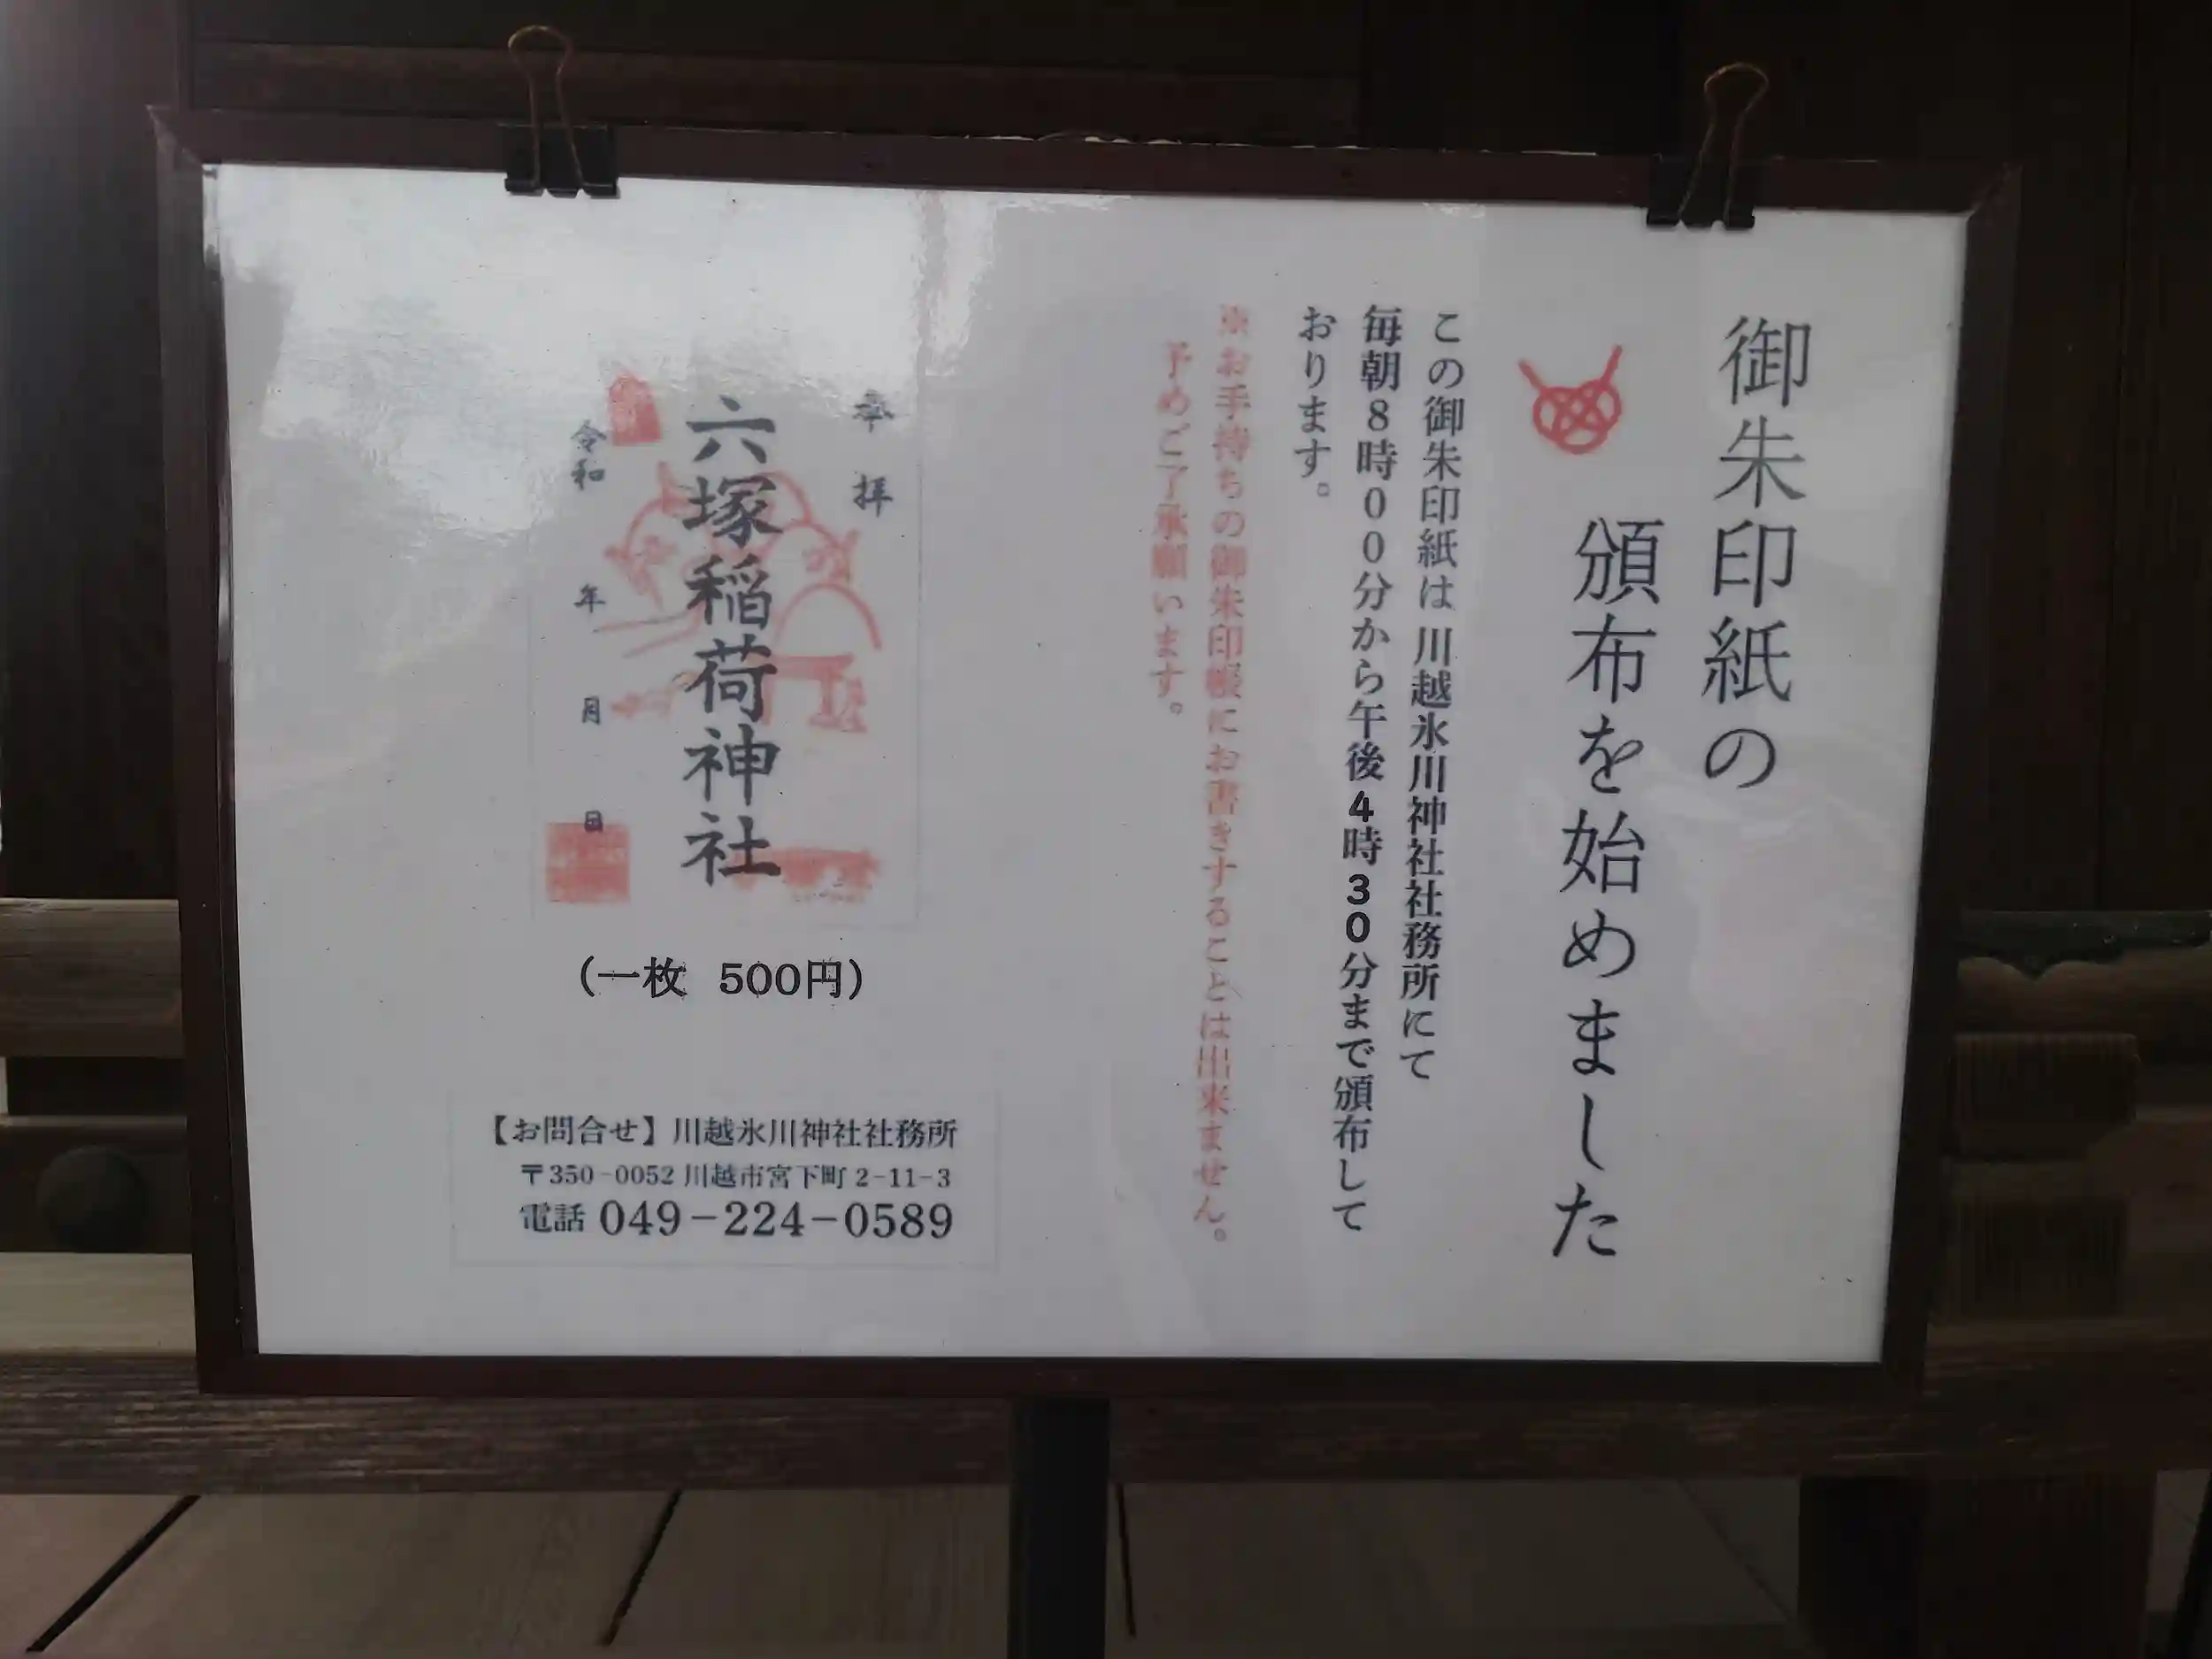 御朱印紙の
頒布を始めました
この御朱印紙は 川越氷川神社社務所にて
毎朝８時００分から午後４時３０分まで頒布して
おります。
※お手持ちの御朱印帳にお書きすることは出来ません。
予めご了承願います。
奉拝
六塚稲荷神社
令和 年 月 日
(一枚 500円)
【お問合せ】川越氷川神社社務所
〒350-0052 川越市宮下町 2-11-3
電話 049-224-0589